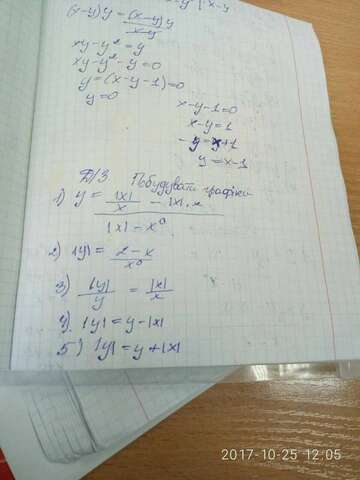 (x-y)y = (x-y)y / x-y
xy-y²=y
xy-y²-y=0
y=(x-y-1)=0
y=0
x-y-1=0
x-y=1
-y=x+1
y=x-1
Д/З. Побудувати графіки
1) y = |x| / x - |x|·x
|x|-x⁰
2) |y| = 2-x / x⁰
3) |y| / y = |x| / x
4) |y|=y-|x|
5) |y|=y+|x|
2017-10-25 12:05